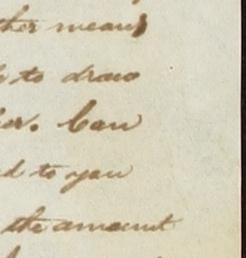 ther means
to draw
er. Can
d to you
the amount